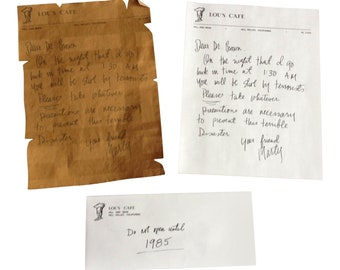 LOU'S CAFE
HILL VALLEY, CALIFORNIA
Dear Dr. Brown
On the night that I go
back in time at 1:30 AM
you will be shot by terrorists
Please take whatever
precautions are necessary
to prevent this terrible
Disaster.
Your friend
Marty
LOU'S CAFE
HILL VALLEY, CALIFORNIA
Dear Dr. Brown
On the night that I go
back in time at 1:30 AM
you will be shot by terrorists
Please take whatever
precautions are necessary
to prevent this terrible
Disaster.
Your friend
Marty
LOU'S CAFE
HILL VALLEY, CALIFORNIA
Do not open until
1985